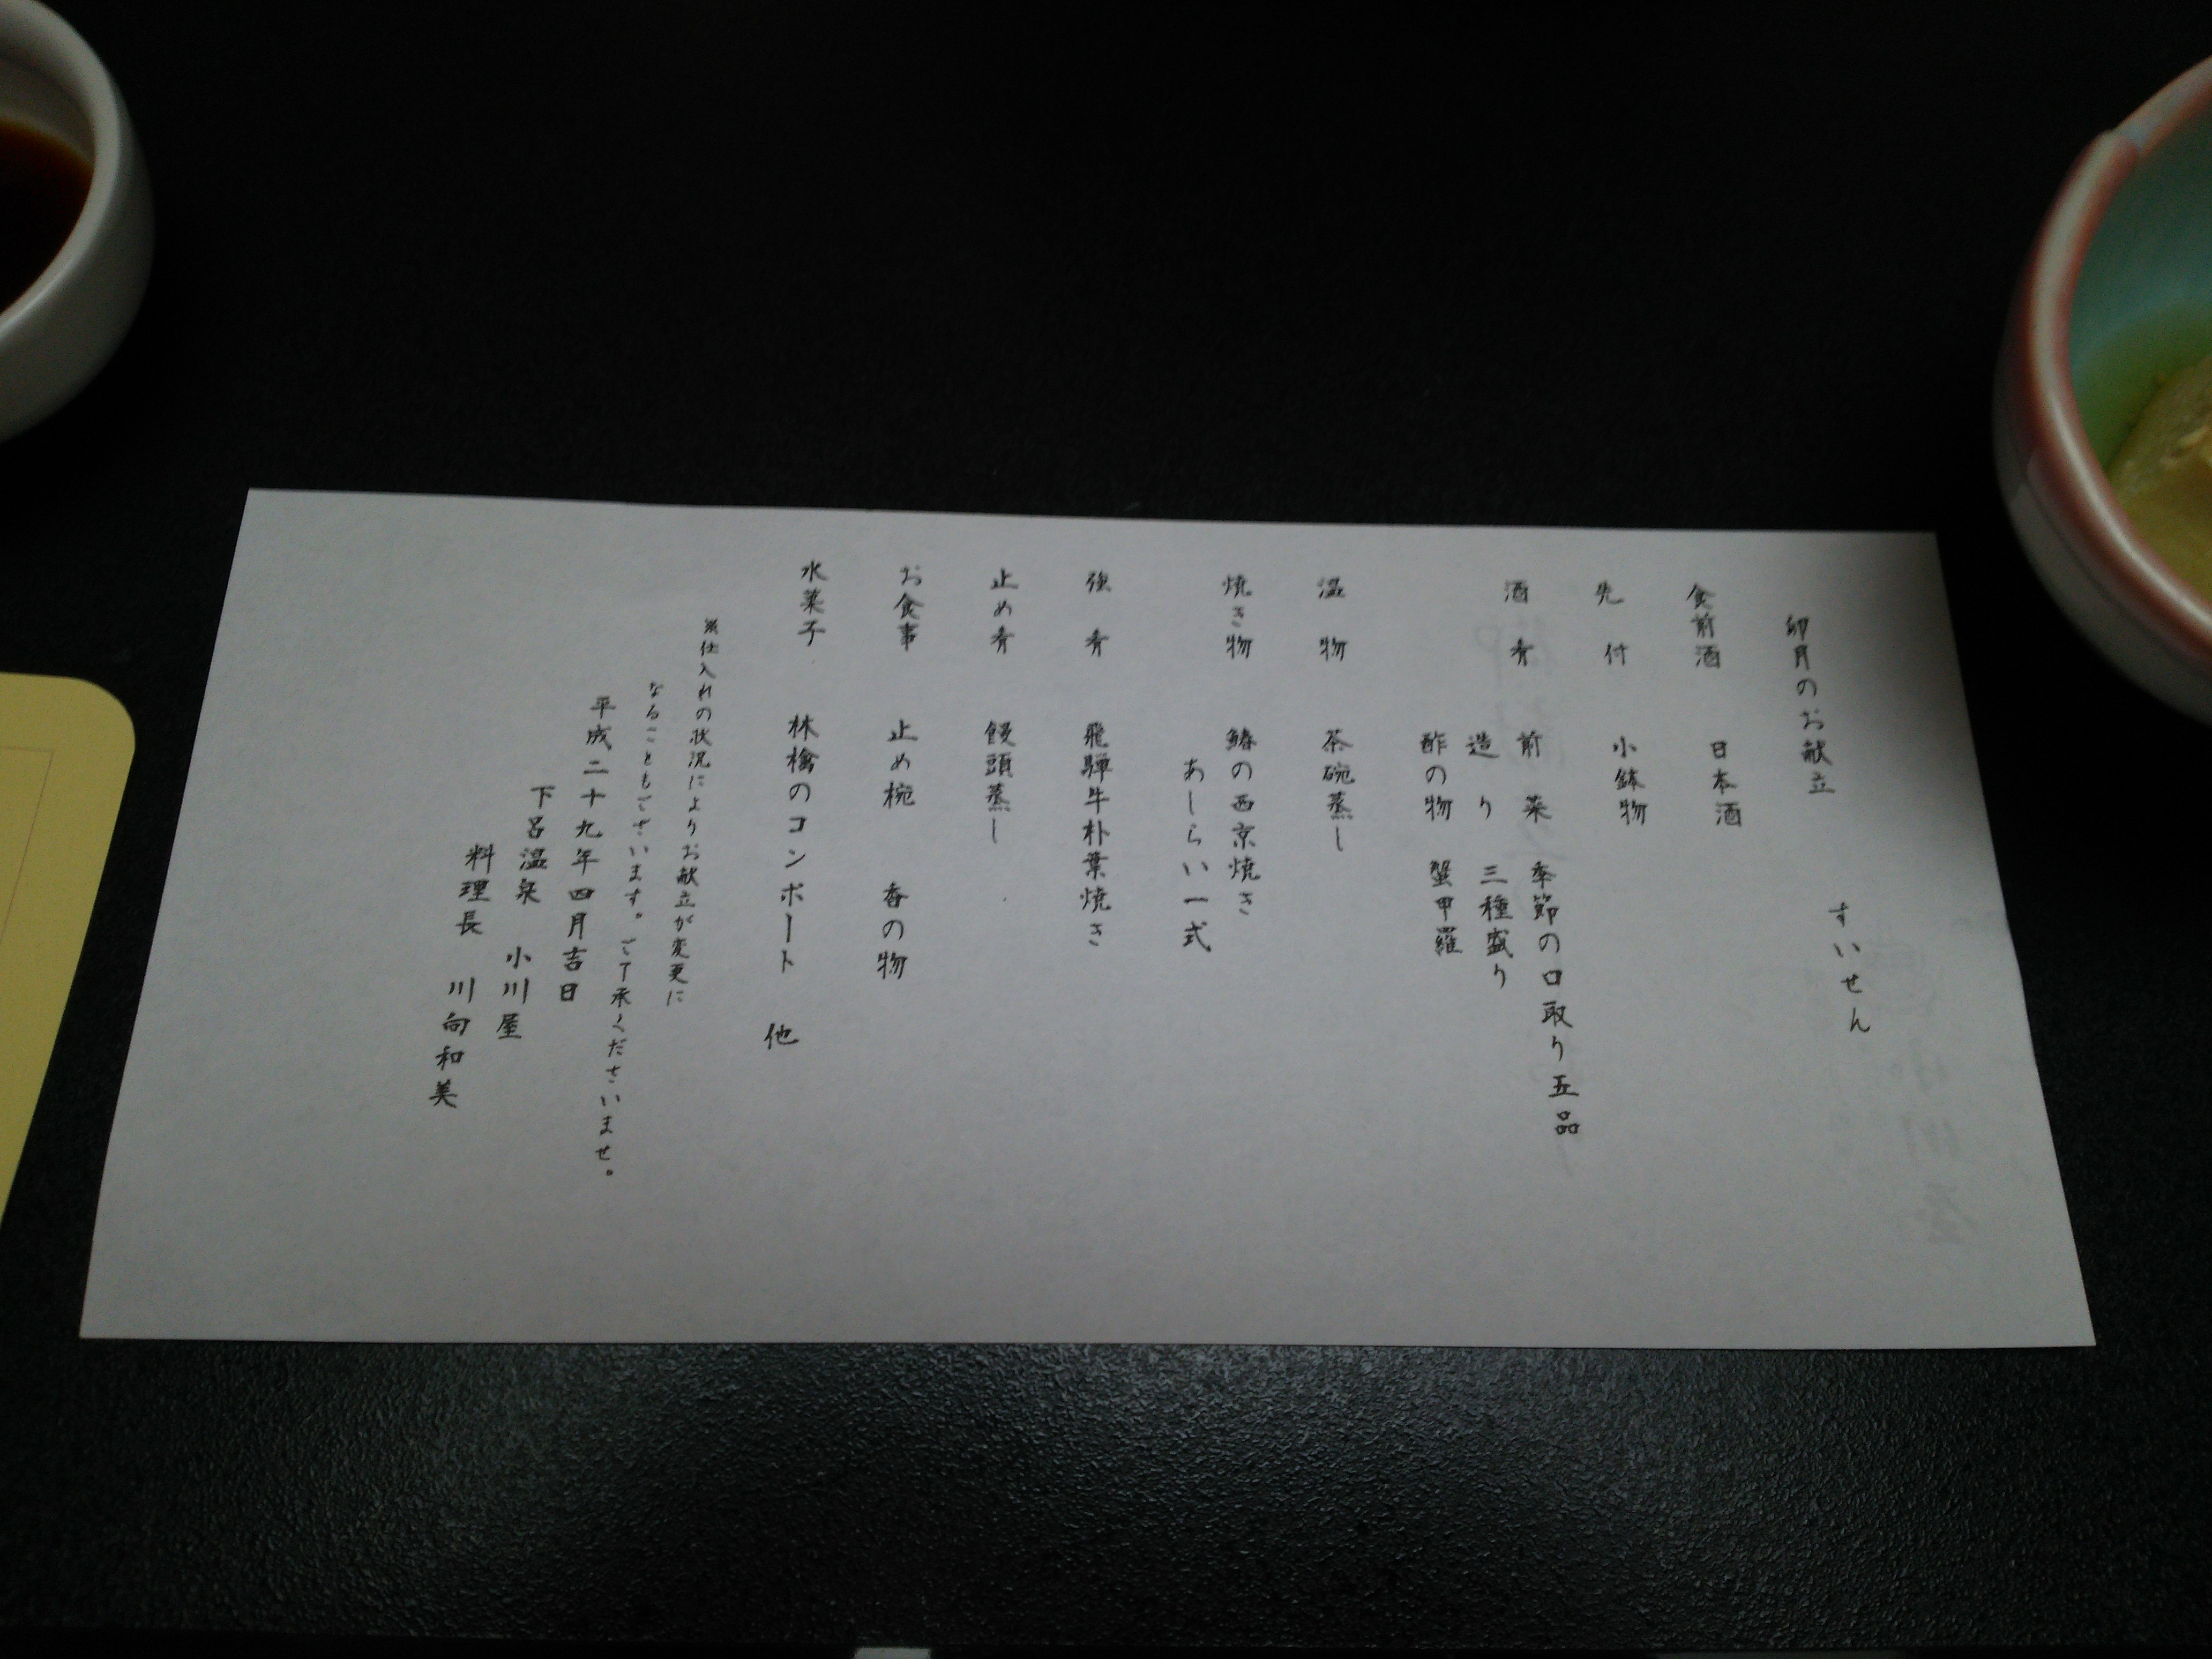 卯月のお献立　すいせん
食前酒　日本酒
先付　小鉢物
酒肴　前菜　季節の口取り五品
造り　三種盛り
酢の物　蟹甲羅
温物　茶碗蒸し
焼き物　鰆の西京焼き
あしらい一式
強肴　飛騨牛朴葉焼き
止め肴　饅頭蒸し
お食事　止め椀　香の物
水菓子　林檎のコンポート　他
※仕入れの状況によりお献立が変更に
なることもございます。ご了承くださいませ。
平成二十九年四月吉日
下呂温泉　小川屋
料理長　川向和美